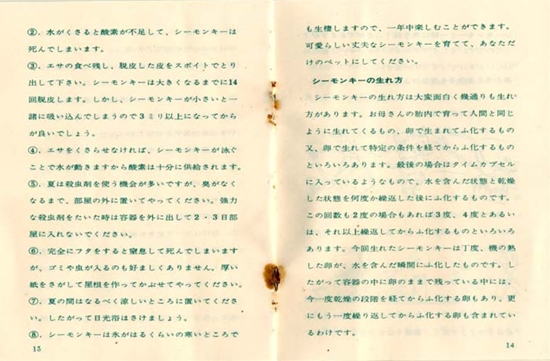 ②．水がくさると酸素が不足して、シーモンキーは
死んでしまいます。
③．エサの食べ残し、脱皮した皮をスポイトでとり
出して下さい。シーモンキーは大きくなるまでに14
回脱皮します。しかし、シーモンキーが小さいと一
諸に吸い込んでしまうので3ミリ以上になってから
が良いでしょう。
④．エサをくさらせなければ、シーモンキーが泳ぐ
ことで水が動きますから酸素は十分に供給されます。
⑤．夏は殺虫剤を使う機会が多いですが、臭がなく
なるまで、部屋の外に置いてやってください。強力
な殺虫剤をたいた時は容器を外に出して2・3日部
屋に入れないでください。
⑥．完全にフタをすると窒息して死んでしまいます
が、ゴミや虫が入るのも好ましくありません。厚い
紙をさがして屋根を作ってかぶせてやってください。
⑦．夏の間はなるべく涼しいところに置いてくださ
い。したがって日光浴はさけましょう。
⑧．シーモンキーは氷がはるくらいの寒いところで
15
も生棲しますので、一年中楽しむことができます。
可愛らしい丈夫なシーモンキーを育てて、あなただ
けのペットにしてください。
シーモンキーの生れ方
シーモンキーの生れ方は大変面白く幾通りも生れ
方があります。お母さんの胎内で育って人間と同じ
ように生れてくるもの、卵で生まれてふ化するもの
又、卵で生れて特定の条件を経てからふ化するもの
といろいろあります。最後の場合はタイムカプセル
に入っているようなもので、水を含んだ状態と乾燥
した状態を何度か繰返した後にふ化するものです。
この回数も2度の場合もあれば3度、4度とあるい
は、それ以上繰返してからふ化するものといろいろ
あります。今回生れたシーモンキーは丁度、機の熟
した卵が、水を含んだ瞬間にふ化したものです。し
たがって容器の中に卵のままで残っている中には、
今一度乾燥の段階を経てからふ化する卵もあり、更
にもう一度繰り返してからふ化する卵も含まれてい
るわけです。
14